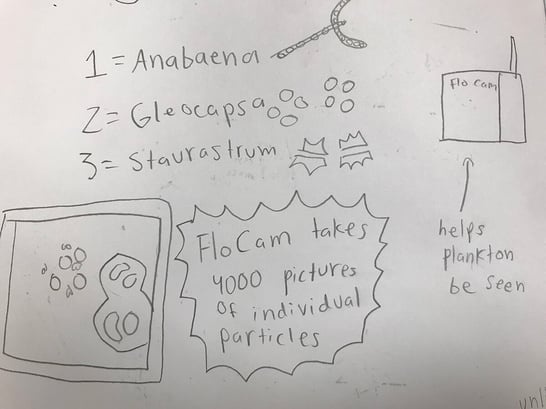 1 = Anabaena
2 = Gleocapsa
3 = Staurastrum
Flo Cam
helps
plankton
be seen
FloCam takes
4000 pictures
of individual
particles